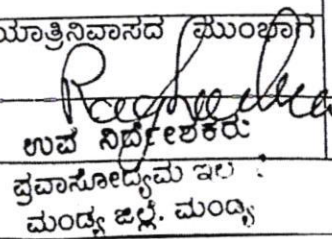 ಯಾತ್ರಿನಿವಾಸದ ಮುಂಭಾಗ
ಉಪ ನಿರ್ದೇಶಕರು
ಪ್ರವಾಸೋದ್ಯಮ ಇಲ
ಮಂಡ್ಯ ಜಿಲ್ಲೆ. ಮಂಡ್ಯ